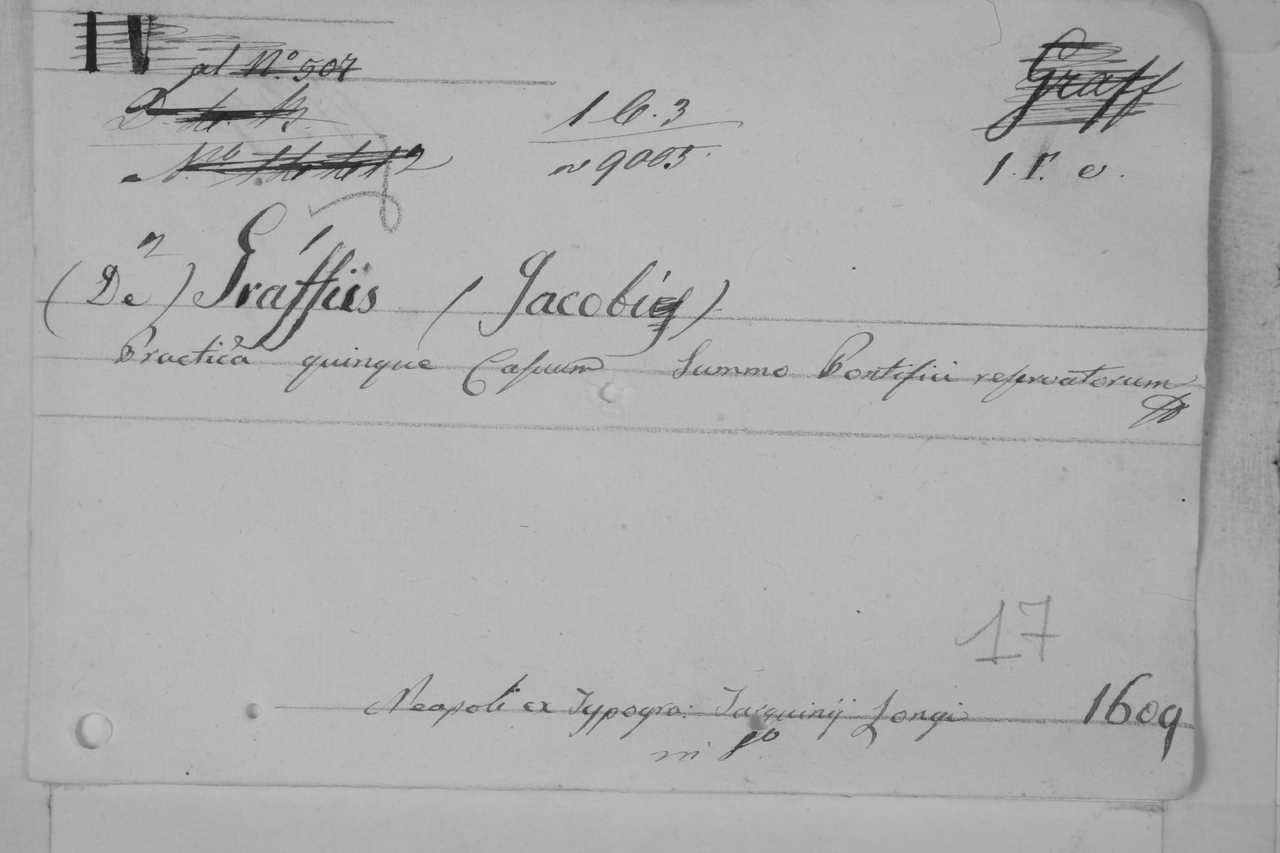 IV
al N.º 507
1 6. 3
n 9005.
Graff
1. F. e.
(De) Graffiis (Jacobi)
Practica quinque Casuum Summo Pontifici reservatorum
17
Neapoli ex Typogra: Tarquinij Longi 1609
in 8º